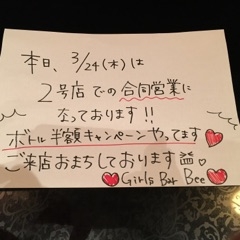 本日、3/24(木)は
2号店での合同営業に
なっております!!
ボトル半額キャンペーンやってます♥
ご来店おまちしております
♥Girls Bar Bee♥